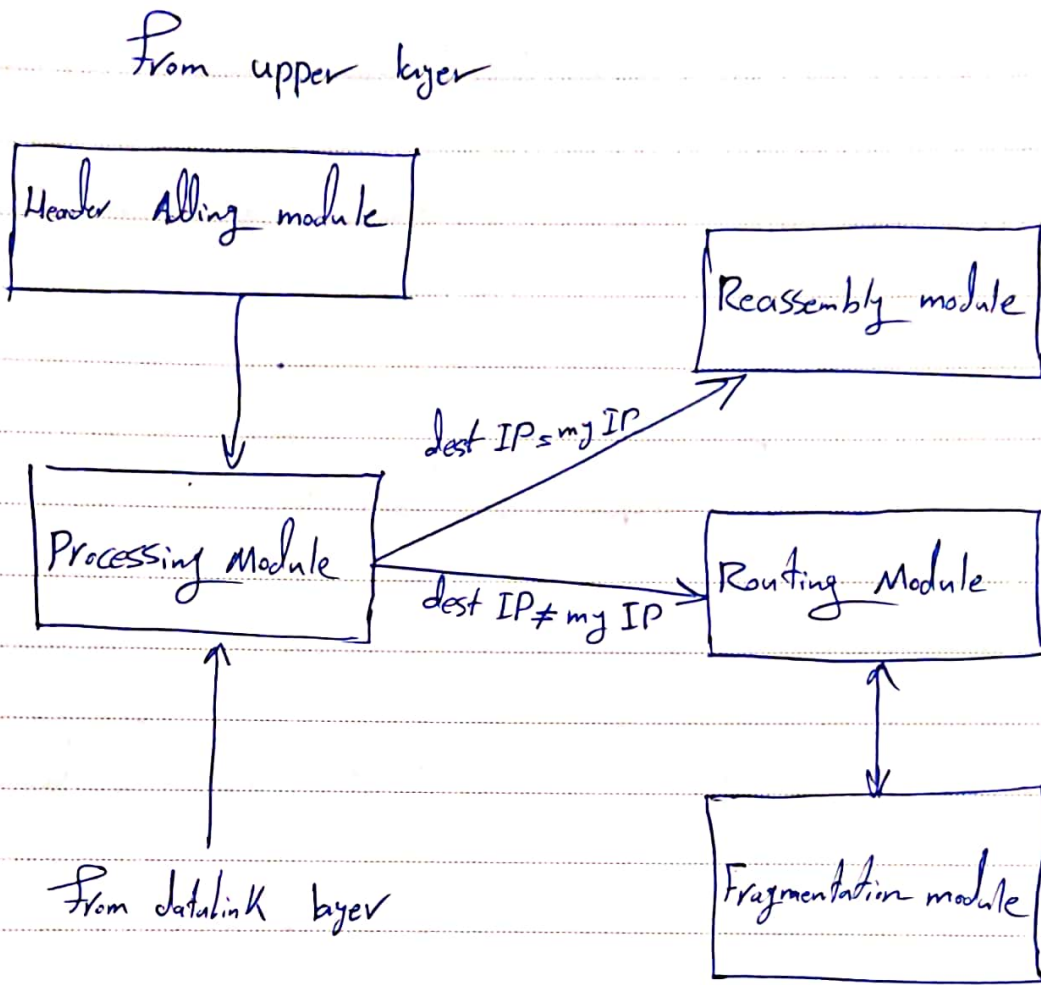 From upper layer
Header Adding module
Reassembly module
dest IP = my IP
Processing Module
dest IP ≠ my IP
Routing Module
From datalink layer
Fragmentation module